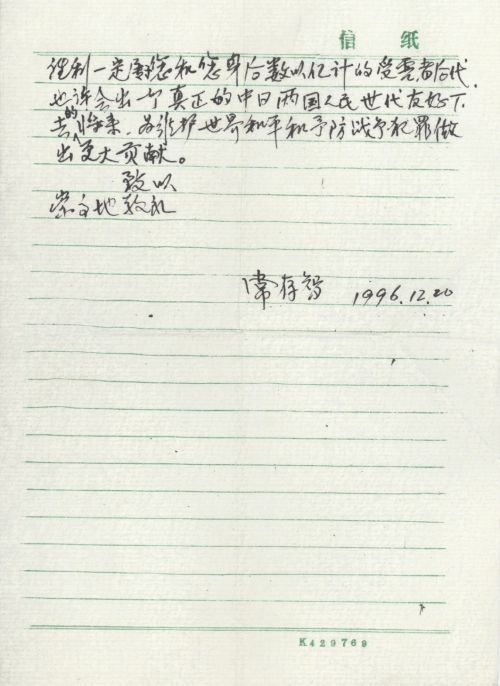 信 纸
胜利一定属您和您身后数以亿计的受害者后代.
也许会出一个真正的中日两国人民世代友好下
去的将来.为维护世界和平和予防战争犯罪做
出更大贡献。
致以
崇高地敬礼
常存智 1996.12.20
K429769